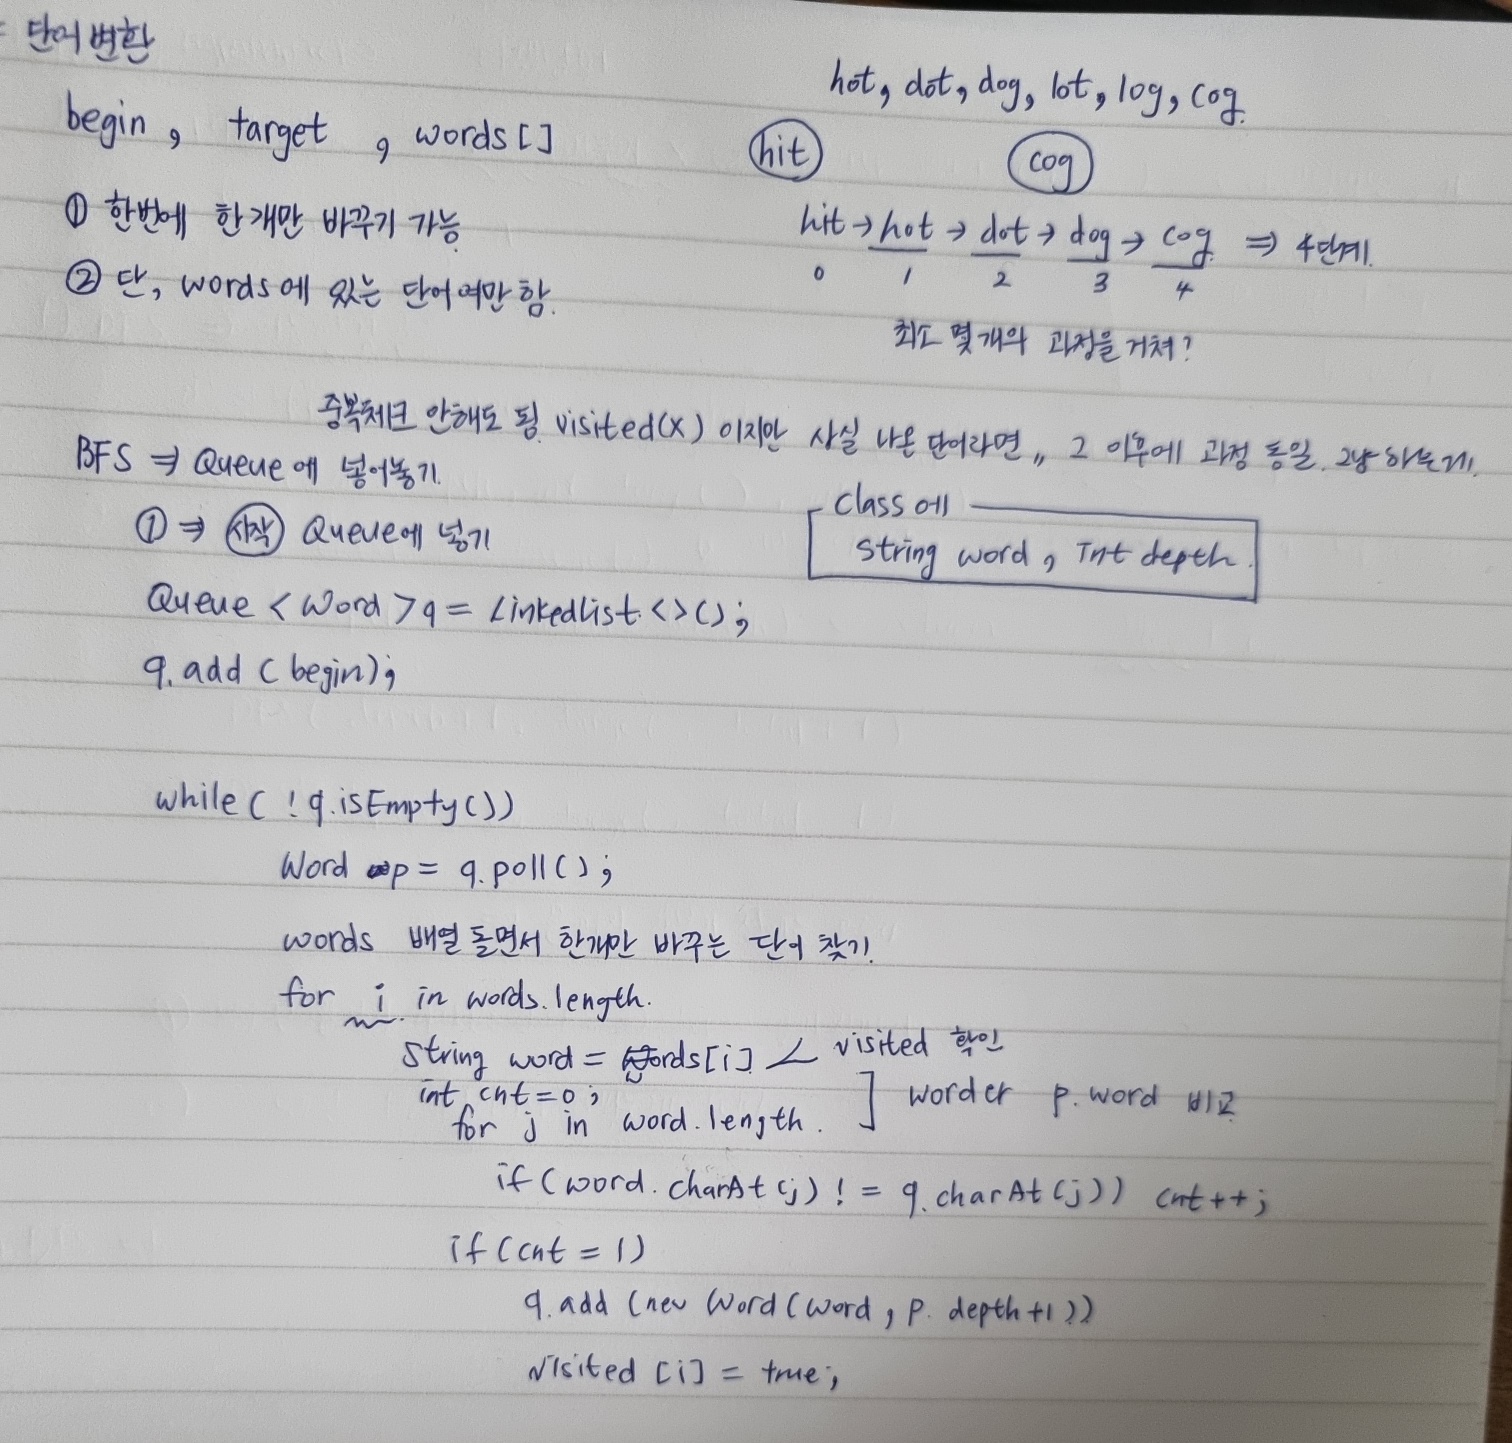 단어 변환
begin, target, words[]
① 한번에 한개만 바꾸기 가능.
② 단, words에 있는 단어여만 함.
hot, dot, dog, lot, log, cog.
hit cog
hit → hot → dot → dog → cog ⇒ 4단계.
0 1 2 3 4
최소 몇개의 과정을 거쳐?
중복체크 안해도 됨. visited(x) 이지만 사실 나온 단어라면,, 그 이후에 과정 동일. 그냥 하는게.
BFS ⇒ Queue에 넣어놓기.
① ⇒ 시작 Queue에 넣기
Class에
String word, Int depth.
Queue <Word> q = LinkedList.<>();
q.add(begin);
while( !q.isEmpty())
Word p = q.poll();
words 배열 돌면서 한개만 바꾸는 단어 찾기.
for i in words.length.
String word = words[i] ∠ visited 확인
int cnt=0;
for j in word.length. ] word와 p.word 비교
if(word.charAt(j) != q.charAt(j)) cnt++;
if(cnt = 1)
q.add(new Word(word, p.depth+1))
visited [i] = true;